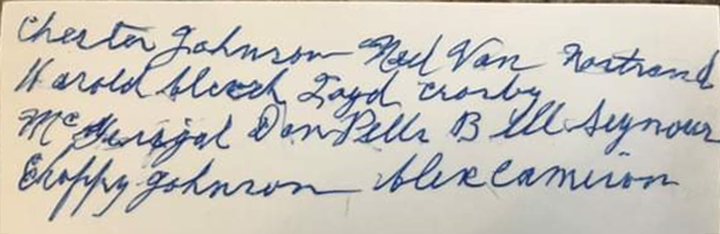 Chester Johnson Ned Van Nostrand
Harold Loyd Crosby
Don Pells Bill Seymour
Choppy Johnson Alex Cameron